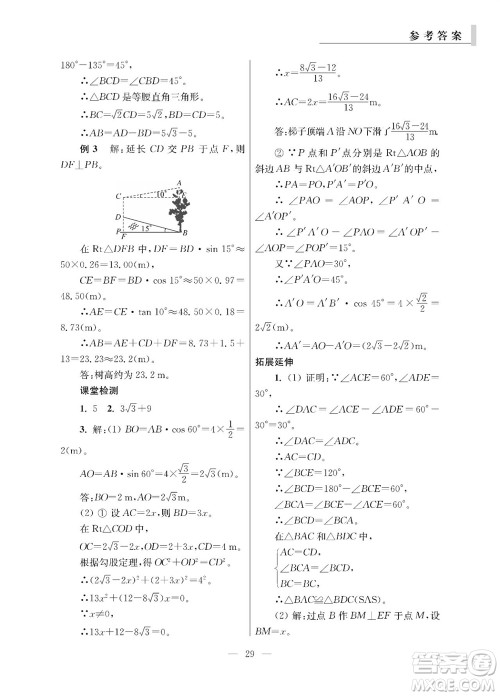 参考答案
180°－135°＝45°,
∴∠BCD＝∠CBD＝45°,
∴△BCD 是等腰直角三角形.
∴BC＝√2CD＝5√3.
∴CD＝5√3.
例 3　解:延长 CD 交 PB 于点 F,则
DF⊥PB.
C　10°　A
E
D
P F　15°　B
在 Rt△DFB 中,DF＝BD・sin 15°≈
50×0.26＝13.00(m).
CE＝BF＝BD・cos 15°≈50×0.97＝
48.50(m).
∴AE＝CE・tan 10°≈48.50×0.18＝
8.73(m).
∴AB＝AE＋CD＋DF＝8.73＋1.5＋
13≈23.2(m).
答:树高约为 23.2 m.
课堂检测
1. 5　2. 3√3＋9
3. 解:(1) BO＝AB・cos60°＝4×1/2＝
2(m).
AO＝AB・sin60°＝4×√3/2＝2√3(m).
答:BO＝2 m,AO＝2√3 m.
(2) ① 设 AC＝2x,BD＝3x.
在 Rt△COD 中,
OC＝2√3－2x,OD＝2＋3x,CD＝4.
根据勾股定理,OC²＋OD²＝CD²,
∴(2√3－2x)²＋(2＋3x)²＝4².
∴13x²＋(12－8√3)x＝0.
∵x≠0,
∴13x＋12－8√3＝0.
∴x＝(8√3－12)/13.
∴AC＝2x＝(16√3－24)/13.
答:梯子顶端 A 沿 NO 下滑了(16√3－24)/13 m.
② ∵P 点和 P′点分别是 Rt△AOB 的
斜边 AB 与 Rt△A′OB′的斜边 A′B′的中点,
∴PA＝PO,P′A′＝P′O.
∴∠PAO＝∠AOP,∠P′A′O＝
∠A′OP′.
∴∠P′A′O－∠PAO＝∠A′OP′－
∠AOP.
∴∠P′A′O－∠PAO＝∠POP′＝15°.
又∵∠PAO＝30°,
∴∠P′A′O＝45°.
∴A′O＝A′B′・cos 45°＝4×√2/2＝
2√2.
∴AA′＝AO－A′O＝(2√3－2√2)m.
拓展延伸
1. (1) 证明:∵∠ACE＝60°,∠CAE＝
60°,
∴∠ACE＝∠CAE＝∠AEC＝60°.
∴∠BCE＝120°.
∴∠BCD＝60°.
∴∠BCA＝∠BCE－∠ACE＝60°.
∴∠BCD＝∠BCA.
在△ABC 与△DBC 中,
AC＝CD,
∠BCA＝∠BCD,
BC＝BC,
∴△ABC≌△DBC(SAS).
(2) 解:过点 B 作 BM⊥EF 于点 M,设
BM＝x.
— 29 —